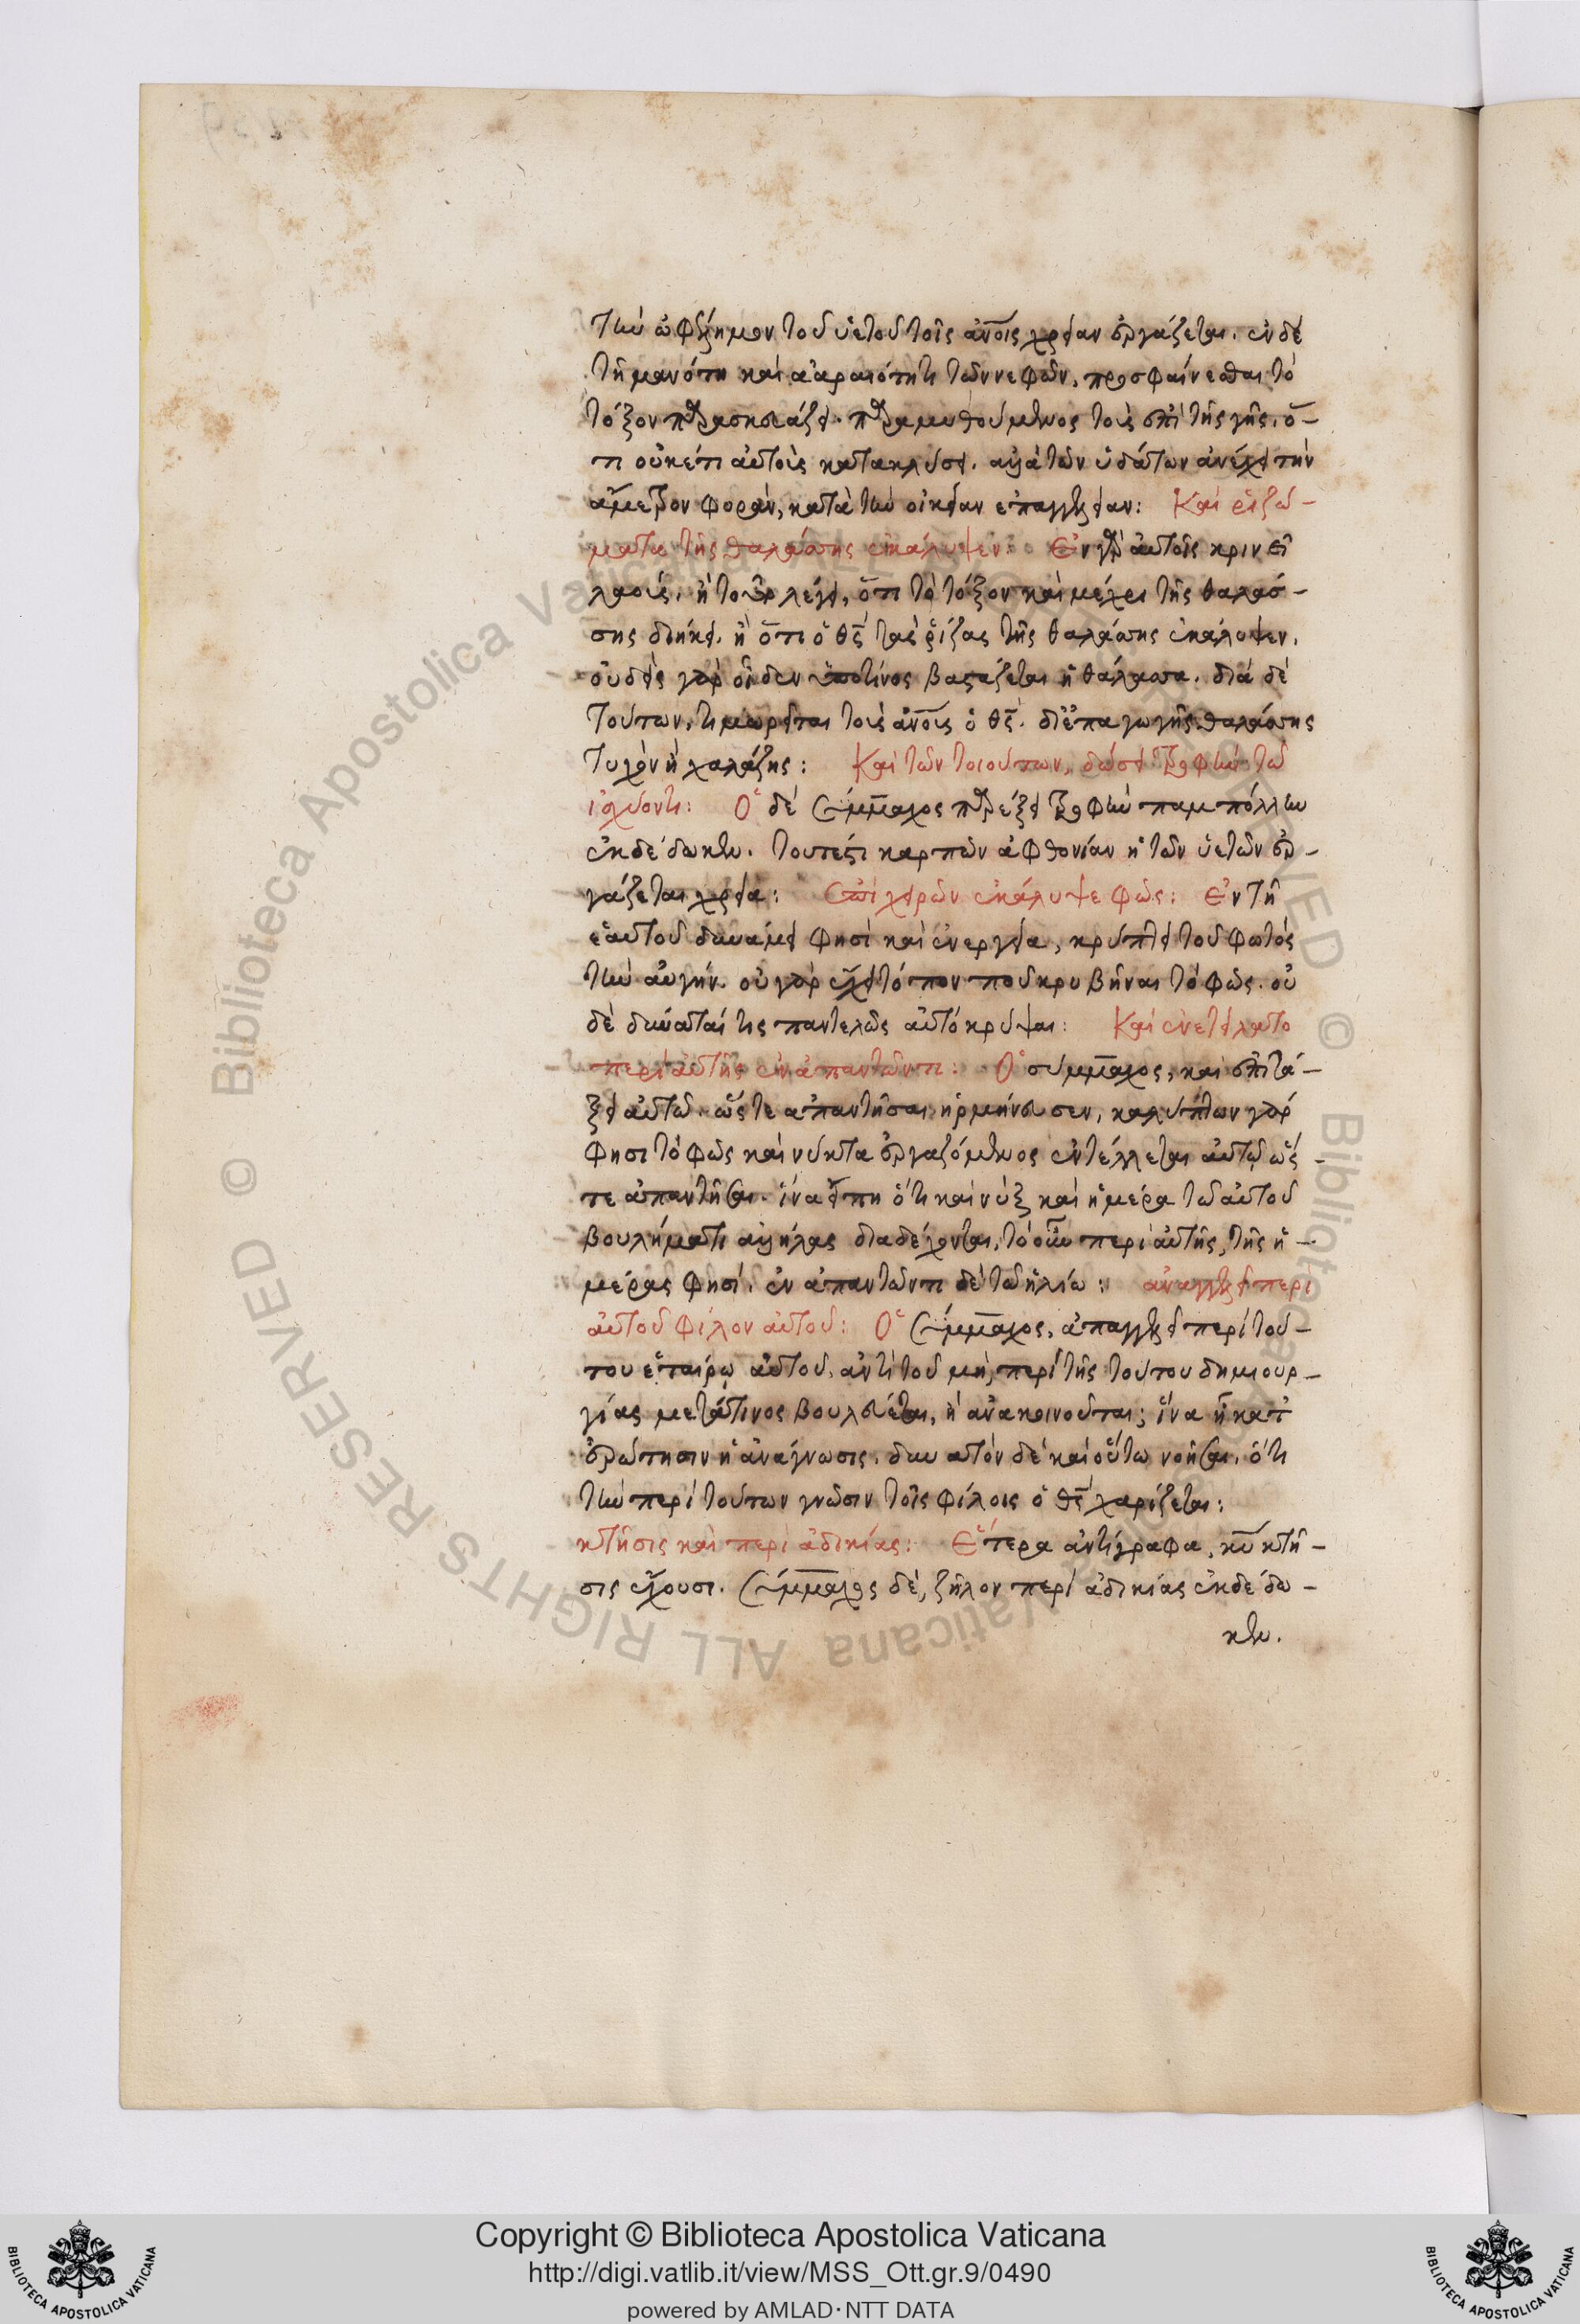 τὴν ὠφέλημον τοῦ ὑετοῦ τοῖς ἀνοις χρείαν ἐργάζεται. ἐν δὲ
τῆ μανότητι καὶ ἀραιότητι τῶν νεφῶν, προσφαίνεσθαι τὸ
τόξον παρασκευάζει. παραμυθούμενος τοὺς ἐπὶ τῆς γῆς, ὅ-
τι οὐκέτι αὐτοὺς κατακλύσει. ἀλλὰ τῶν ὑδάτων ἀνέχει τὴν
ἄμετρον φορὰν, κατὰ τὴν οἰκείαν ἐπαγγελίαν: Καὶ ριζώ-
ματα τῆς θαλάσσης ἐκάλυψεν: Ἐν γὰρ αὐτοῖς κρινεῖ
λαοὺς. ἢ τοῦτο λέγει, ὅτι τὸ τόξον καὶ μέχρι τῆς θαλάσ-
σης διήκει. ἢ ὅτι ὁ θς τὰς ῥίζας τῆς θαλάσσης ἐκάλυψεν.
οὐδεὶς γὰρ οἶδεν ὑπὸ τίνος βαστάζεται ἡ θάλασσα. διὰ δὲ
τούτων, τιμωρεῖται τοὺς ἀνους ὁ θς. δι' ἐπαγωγῆς θαλάσσης
τυχὸν ἢ χαλάζης: Καὶ τῶν τοιούτων, δώσει τροφὴν τῶ
ἰσχύοντι: Ὁ δὲ Σύμμαχος παρέξει τροφὴν παμπόλλην
ἐκδέδωκεν. τουτέστι καρπῶν ἀφθονίαν ἡ τῶν ὑετῶν ἐρ-
γάζεται χρεία: Ἐπὶ χειρῶν ἐκάλυψε φῶς: Ἐν τῆ
ἑαυτοῦ δυνάμει φησὶ καὶ ἐνεργεία, κρύπτει τοῦ φωτὸς
τὴν αὐγήν. οὐ γὰρ ἔχει τόπον ποῦ κρυβῆναι τὸ φῶς. οὐ
δὲ δύναταί τις παντελῶς αὐτὸ κρύψαι: Καὶ ἐνετείλατο
περὶ αὐτῆς ἐν ἀπαντῶντι: Ὁ σύμμαχος, καὶ ἐπιτά-
ξει αὐτῶ, ὥστε ἀπαντῆσαι ἡρμήνευσεν, καλύπτων γάρ
φησι τὸ φῶς καὶ νύκτα ἐργαζόμενος ἐντέλλεται αὐτῷ ὥσ-
τε ἀπαντῆσαι. ἵνα εἴπη ὅτι καὶ νὺξ καὶ ἡμέρα τῶ αὐτοῦ
βουλήματι ἀλλήλας διαδέχονται, τὸ οὖν περὶ αὐτῆς, τῆς ἡ-
μέρας φησὶ. ἐν ἀπαντῶντι δὲ τῶ ἡλίω: ἀναγγελεῖ περὶ
αὐτοῦ φίλον αὐτοῦ: Ὁ Σύμμαχος, ἀπαγγελεῖ περὶ τού-
του ἑταίρῳ αὐτοῦ. ἀντὶ τοῦ μὴ περὶ τῆς τούτου δημιουρ-
γίας μετά τινος βουλεύεται, ἢ ἀνακοινοῦται; ἵνα ἦ κατ'
ἐρώτησιν ἡ ἀνάγνωσις. δυνατὸν δὲ καὶ οὕτω νοῆσαι, ὅτι
τὴν περὶ τούτων γνῶσιν τοῖς φίλοις ὁ θς χαρίζεται:
κτῆσις καὶ περὶ ἀδικίας: Ἕτερα ἀντίγραφα, κῦ κτῆ-
σις ἔχουσι. Σύμμαχος δὲ, ζῆλον περὶ ἀδικίας ἐκδέδω-
κεν.
Copyright © Biblioteca Apostolica Vaticana
http://digi.vatlib.it/view/MSS_Ott.gr.9/0490
powered by AMLAD·NTT DATA